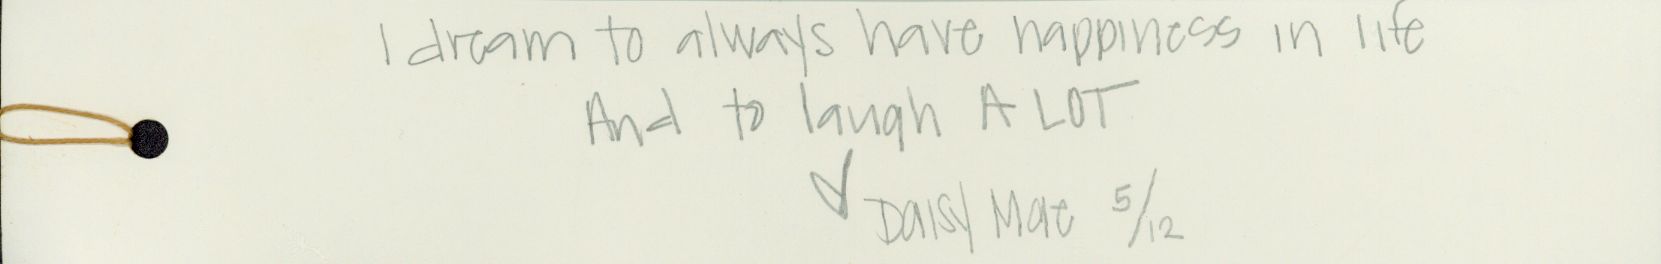 I dream to always have happiness in life
And to laugh A LOT
Daisy Mae 5/12